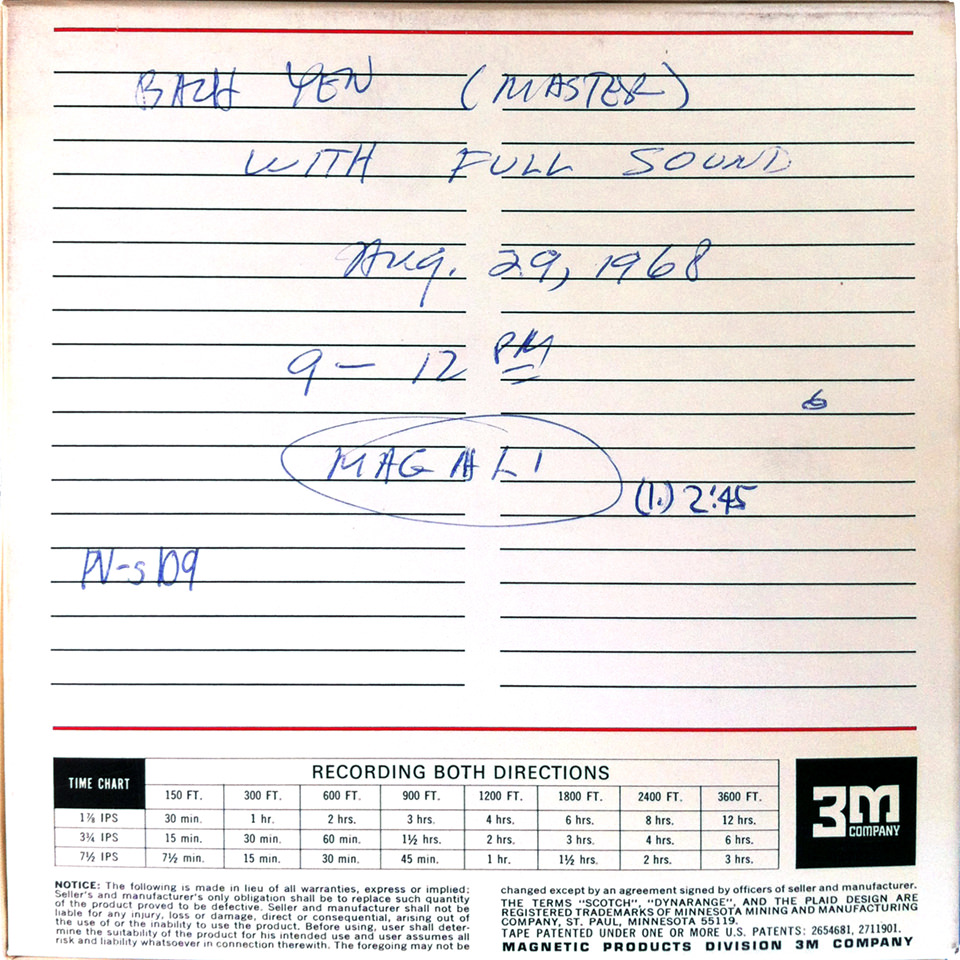 BACH YEN (MASTER)
WITH FULL SOUND
Aug. 29, 1968
9 - 12 PM
6
MAGALI
(1.) 2:45
PV-s 109
TIME CHART
RECORDING BOTH DIRECTIONS
150 FT. 300 FT. 600 FT. 900 FT. 1200 FT. 1800 FT. 2400 FT. 3600 FT.
1⅞ IPS 30 min. 1 hr. 2 hrs. 3 hrs. 4 hrs. 6 hrs. 8 hrs. 12 hrs.
3¾ IPS 15 min. 30 min. 60 min. 1½ hrs. 2 hrs. 3 hrs. 4 hrs. 6 hrs.
7½ IPS 7½ min. 15 min. 30 min. 45 min. 1 hr. 1½ hrs. 2 hrs. 3 hrs.
3M
COMPANY
NOTICE: The following is made in lieu of all warranties, express or implied:
Seller's and manufacturer's only obligation shall be to replace such quantity
of the product proved to be defective. Seller and manufacturer shall not be
liable for any injury, loss or damage, direct or consequential, arising out of
the use of or the inability to use the product. Before using, user shall deter-
mine the suitability of the product for his intended use and user assumes all
risk and liability whatsoever in connection therewith. The foregoing may not be
changed except by an agreement signed by officers of seller and manufacturer.
THE TERMS "SCOTCH", "DYNARANGE", AND THE PLAID DESIGN ARE
REGISTERED TRADEMARKS OF MINNESOTA MINING AND MANUFACTURING
COMPANY, ST. PAUL, MINNESOTA 55119.
TAPE PATENTED UNDER ONE OR MORE U.S. PATENTS: 2654681, 2711901.
MAGNETIC PRODUCTS DIVISION 3M COMPANY